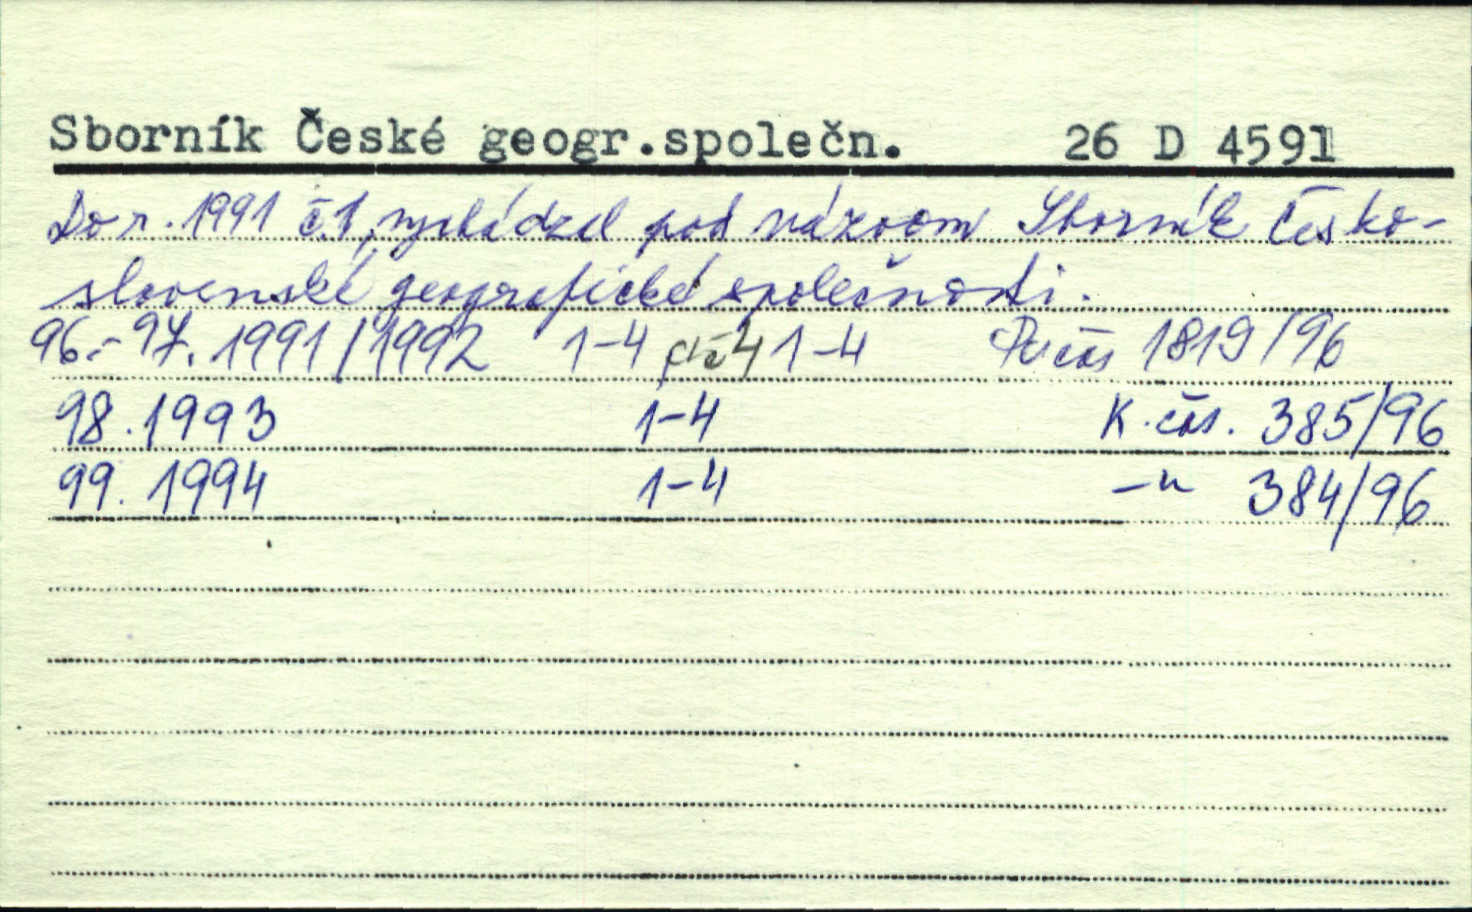 Sborník České geogr.společn. 26 D 4591
Do r. 1991 č.1 vychádzal pod názvom Sborník Česko-
slovenské geografické společnosti.
96.-97. 1991/1992 1-4 1-4 čas 1819/96
98. 1993 1-4 K. čas. 385/96
99. 1994 1-4 -"- 384/96